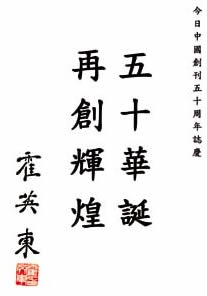 今日中國創刊五十周年誌慶
五十華誕
再創輝煌
霍英東